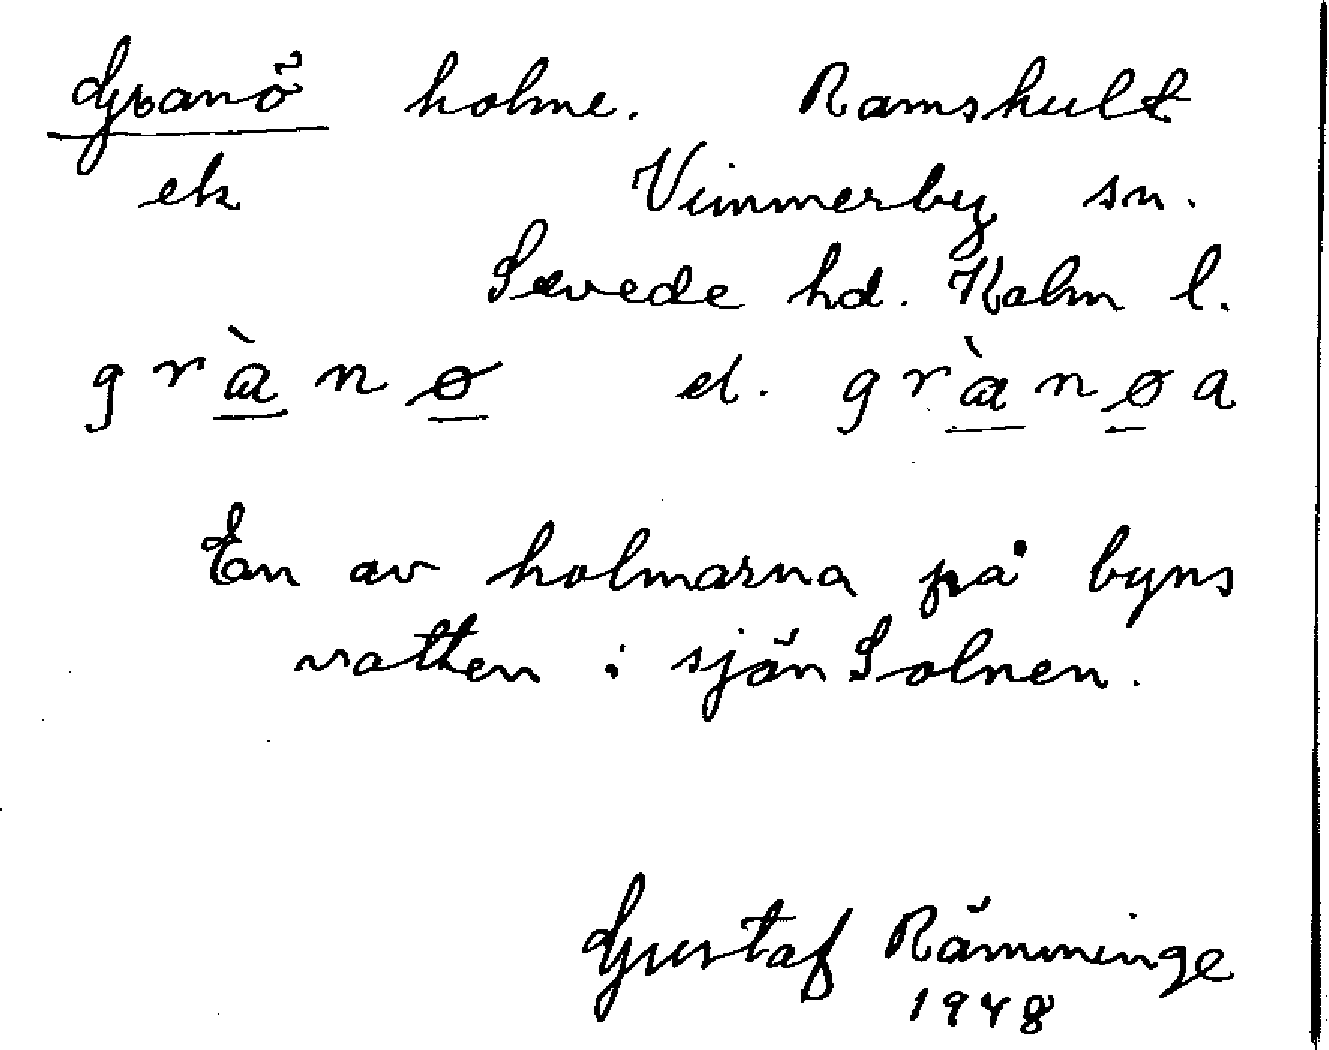 Granö holme. Ramshult
ek Vimmerby sn.
Sevede hd. Kalm l.
grànø el. grànøa
En av holmarna på byns
vatten i sjön Solnen.
Gustaf Rämminge
1948